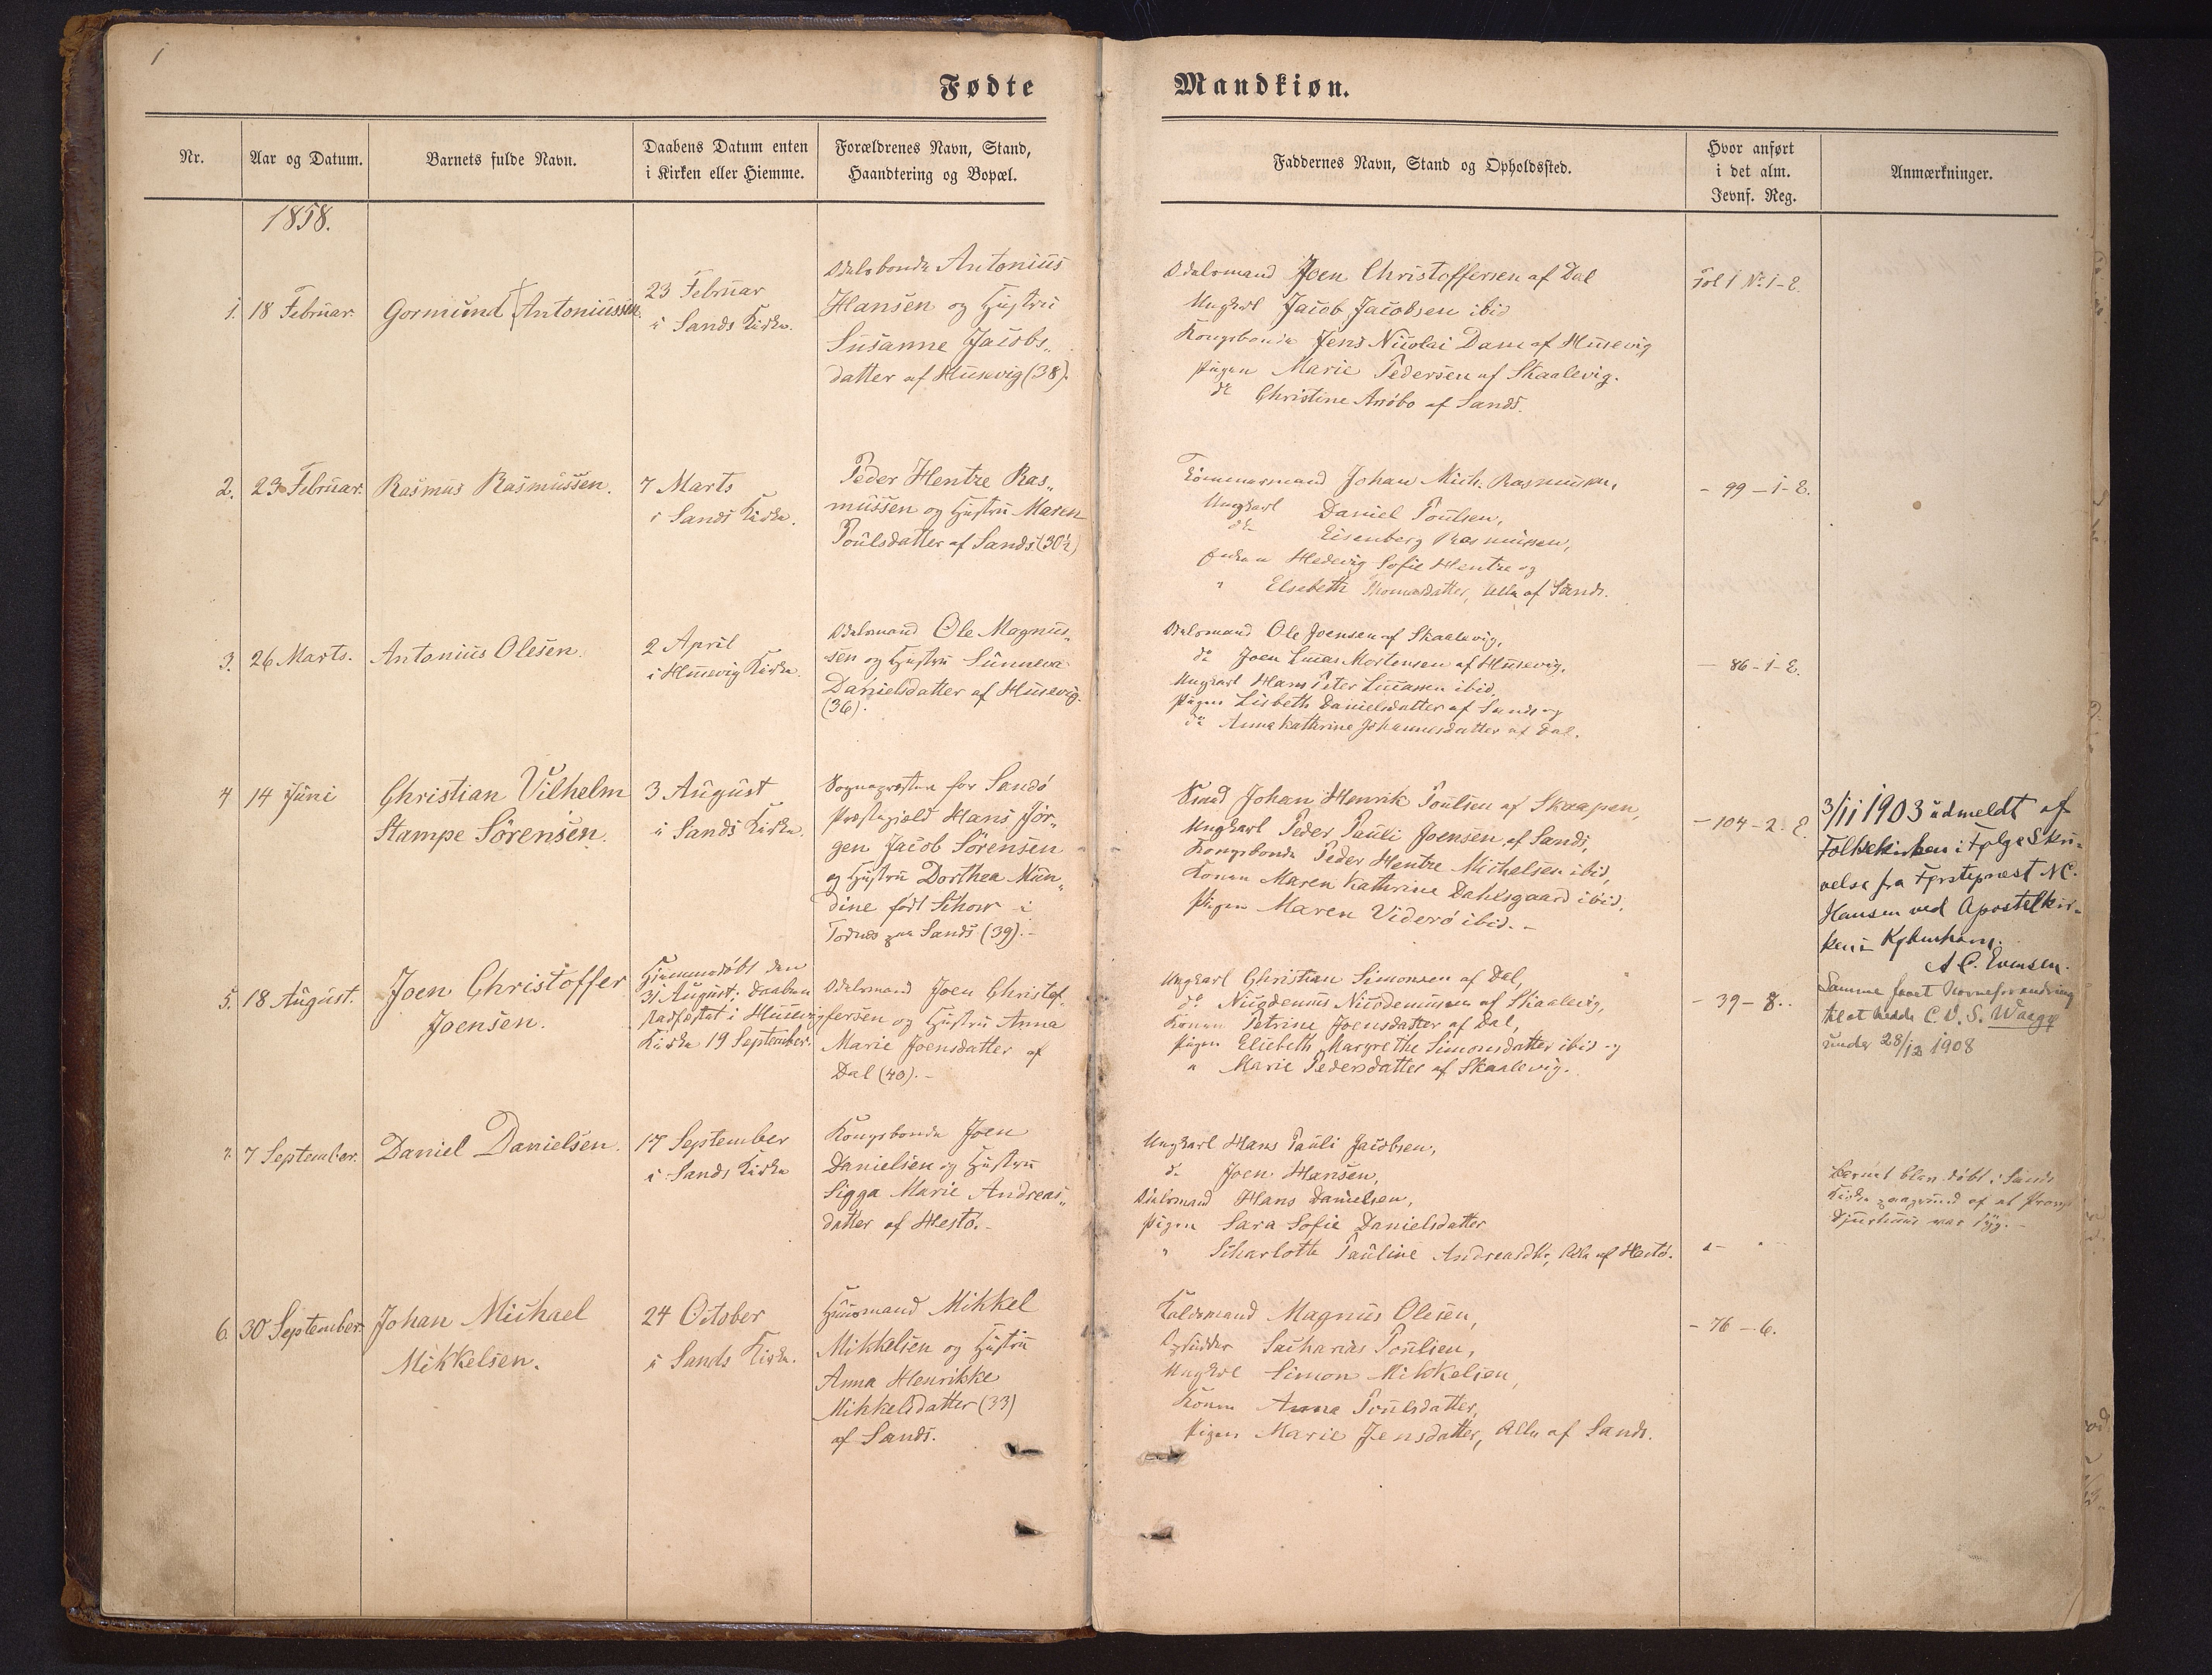 1
Fødte
Mandkiøn.
Nr.
Aar og Datum.
Barnets fulde Navn.
Daabens Datum enten
i Kirken eller Hiemme.
Forældrenes Navn, Stand,
Haandtering og Bopæl.
Faddernes Navn, Stand og Opholdssted.
Hvor anført
i det alm.
Jevnf. Reg.
Anmærkninger.
1858.
1.
18 Februar.
Gormund Antoniussen.
23 Februar
i Sands Kirke.
Odelsbonde Antonius
Hansen og Hustru
Susanne Jacobs„
datter af Husevig (38).
Odelsmand Joen Christoffersen af Dal
Ungkarl Jacob Jacobsen ibid
Kongsbonde Jens Nicolai Dam af Husevig
Pigen Marie Pedersen af Skaalevig.
do Christine Arøbo af Sands.
Fol 1 No 1-2.
2.
23 Februar.
Rasmus Rasmussen.
7 Marts
i Sands Kirke.
Peder Hentze Ras„
mussen og Hustru Maren
Poulsdatter af Sands (30½)
Tömmermand Johan Mich. Rasmussen,
Ungkarl Daniel Poulsen,
do Eisenberg Rasmussen,
Hedevig Sofie Hentze og
" Elsebeth Thomasdatter, Alle af Sands.
- 99 - 1-2.
3.
26 Marts.
Antonius Olesen.
2 April
i Husevig Kirke.
Odelsmand Ole Magnus„
sen og Hustru Sunneva
Danielsdatter af Husevig.
(36).
Odelsmand Ole Joensen af Skaalevig,
do Joen Lucas Mortensen af Husevig,
Ungkarl Hans Peter Lucassen ibid,
Pigen Lisbeth Danielsdatter af Sands og
do Anna Kathrine Johannesdatter af Dal.
- 86 - 1-2.
4
14 Juni
Christian Vilhelm
Stampe Sörensen.
3 August
i Sands Kirke.
Sognepræsten for Sandö
Præstegjeld Hans Jör„
gen Jacob Sörensen
og Hustru Dorthea Mun„
dine født Schow i
Todnæs paa Sands (39).-
Johan Henrik Poulsen af Skaapen,
Ungkarl Peder Pauli Joensen af Sands,
Kongsbonde Peder Hentze Michelsen ibid,
Konen Maren Kathrine Dahlsgaard ibid,
Pigen Maren Viderö ibid. -
- 104 - 2. 2.
3/11 1903 udmeldt af
Folkekirken i Følge Skri„
velse fra Førstepræst N.C.
Hansen ved Apostelkir„
ken i Kjøbenhavn.
A.C. Evensen.
Samme faaet Navneforandring
til at hedde C.V.S. Waagø
under 28/12 1908
5.
18 August.
Joen Christoffer
Joensen.
Hjemmedöbt den
31 August; Daaben
stadfæstet i Husevig
Kirke 19 September.
Odelsmand Joen Christof„
fersen og Hustru Anna
Marie Joensdatter af
Dal (40). -
Ungkarl Christian Simonsen af Dal,
do Nicodemus Nicodemussen af Skaalevig,
Konen Petrine Joensdatter af Dal,
Pigen Elsebeth Margrethe Simonsdatter ibid og
" Marie Pedersdatter af Skaalevig.
- 39 - 8.
7 September.
Daniel Danielsen.
17 September
i Sands Kirke
Kongsbonde Joen
Danielsen og Hustru
Sigga Marie Andreas„
datter af Hestö. -
Ungkarl Hans Pauli Jacobsen,
do Joen Hansen,
Odelsmand Hans Danielsen,
Pigen Sara Sofie Danielsdatter
" Scharlotte Pauline Andreasdtr, Alle af Hestö.
Barnet blev döbt i Sands
Kirke paagrund af at Provst
Djurhuus var syg. -
6.
30 September.
Johan Michael
Mikkelsen.
24 October
i Sands Kirke.
Huusmand Mikkel
Mikkelsen og Hustru
Anna Henrikke
Mikkelsdatter (33)
af Sands.
Magnus Olesen,
Sacharias Poulsen,
Ungkarl Simon Mikkelsen,
Konen Anna Poulsdatter,
Pigen Marie Jensdatter, Alle af Sands.
- 76 - 6.